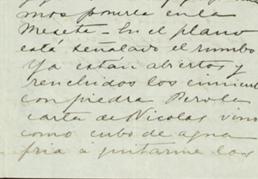 mos ponerla en la
Meseta - En el plano
está señalado el rumbo
Ya están abiertos y
renchidos los cimient
con piedra Pero la
carta de Nicolas vino
como cubo de agua
fria á quitarme los